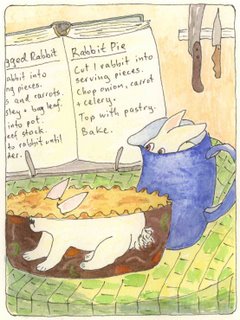 gged Rabbit
rabbit into
ng pieces.
s and carrots.
sley + bay leaf.
into pot.
eef stock.
to rabbit until
der.
Rabbit Pie
Cut 1 rabbit into
serving pieces.
Chop onion, carrot
+ celery.
Top with pastry.
Bake.